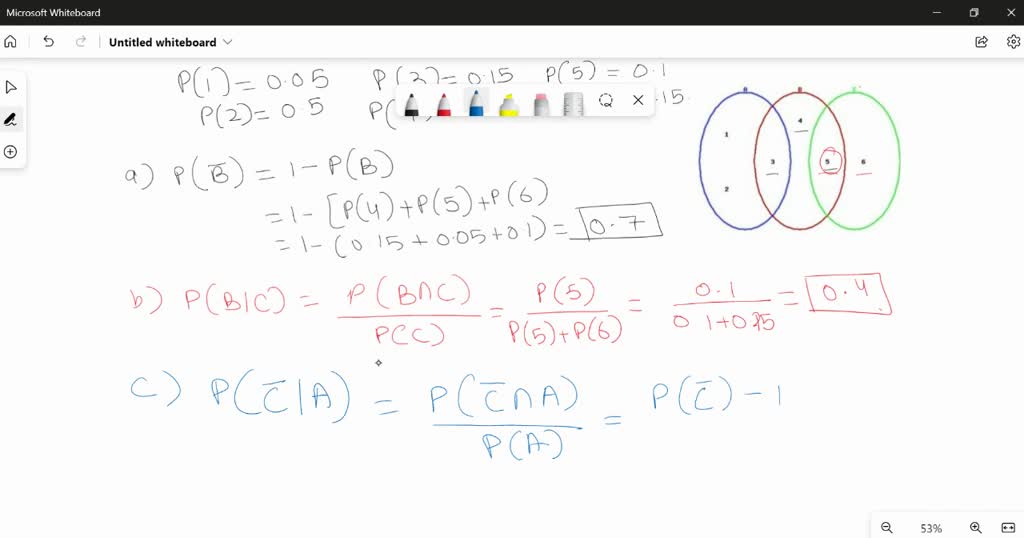 Microsoft Whiteboard
Untitled whiteboard
P(1) = 0.05 P(2) = 0.15 P(5) = 0.1
P(2) = 0.5 P( .15
a) P(B̅) = 1 - P(B)
= 1 - [P(4) + P(5) + P(6)
= 1 - (0.15 + 0.05 + 0.1) = 0.7
b) P(B|C) = P(B∩C) / P(C) = P(5) / P(5)+P(6) = 0.1 / 0.1+0.15 = 0.4
c) P(C̅|A) = P(C̅∩A) / P(A) = P(C̅) - 1
1
2
3
4
5
6
53%